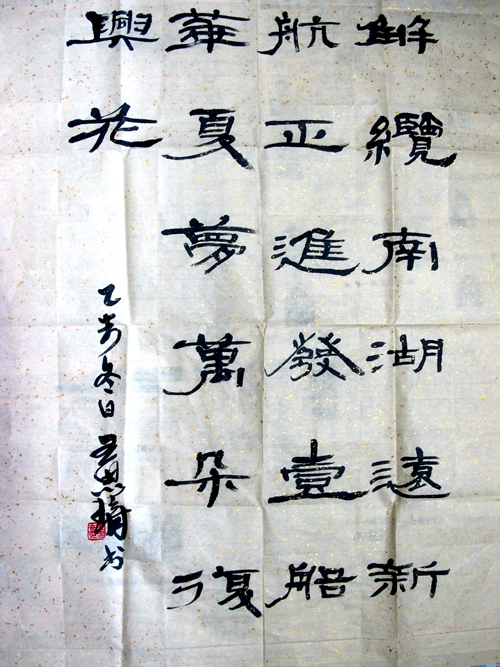 觧纜南湖遠新
航正進發壹船
華夏夢萬朵復
興花
乙未冬日書